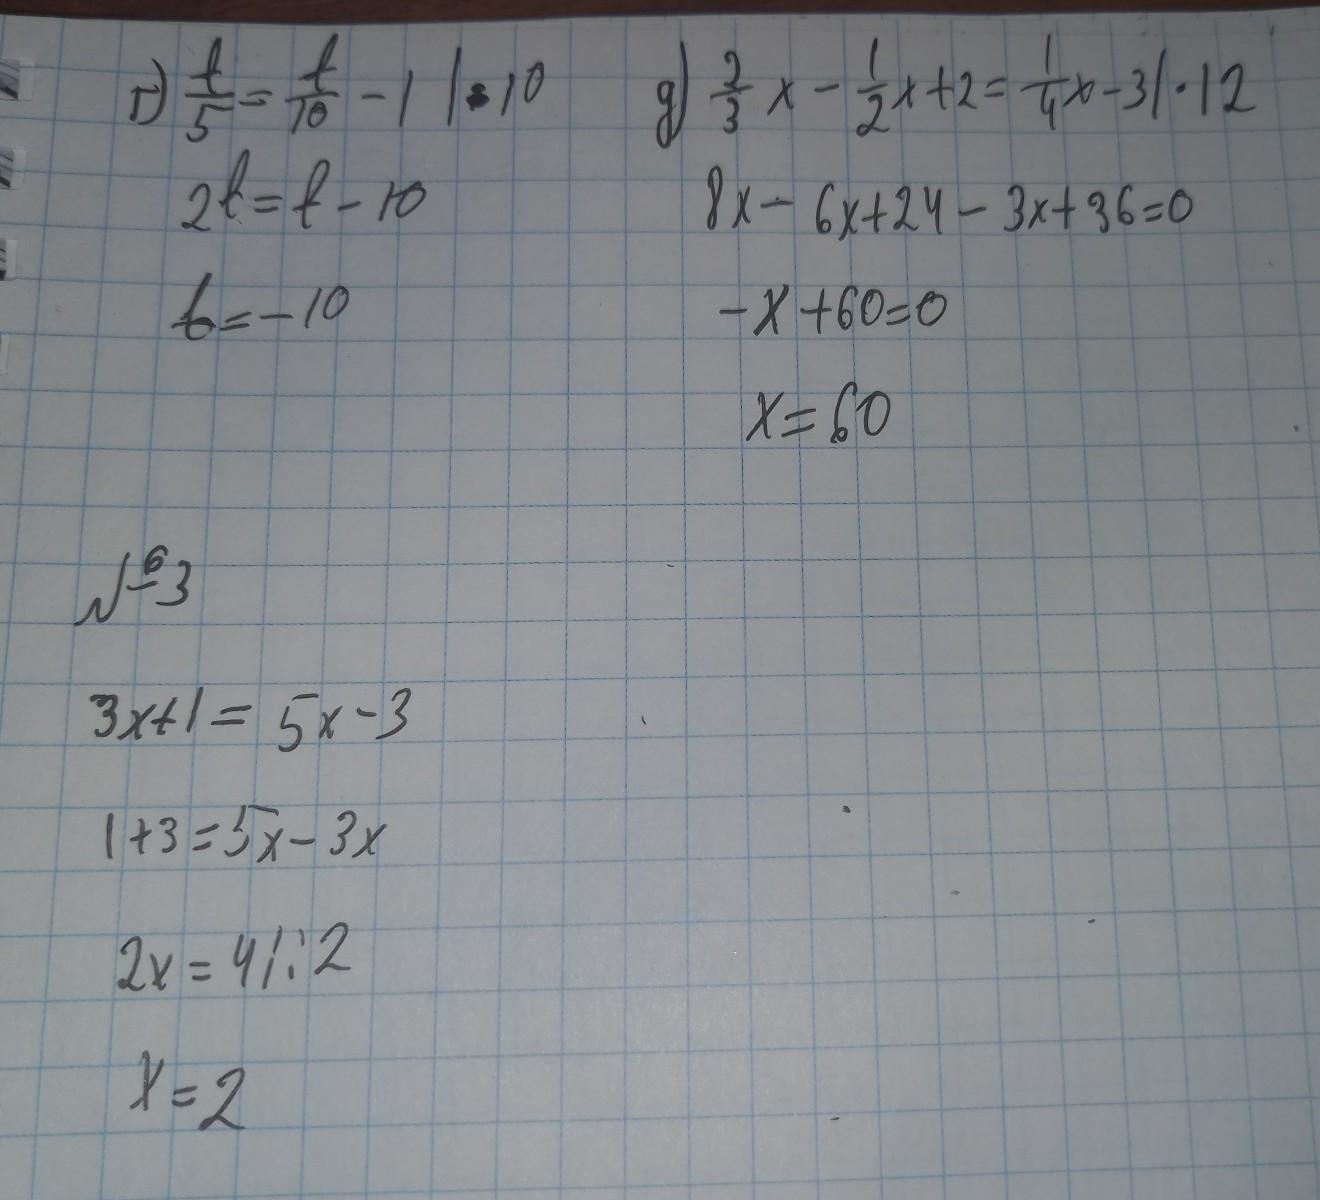 г) t/5 = t/10 - 1 | · 10
2t = t - 10
t = -10
д) 2/3 x - 1/2 x + 2 = 1/4 x - 3 | · 12
8x - 6x + 24 - 3x + 36 = 0
-x + 60 = 0
x = 60
№3
3x + 1 = 5x - 3
1 + 3 = 5x - 3x
2x = 4 | : 2
x = 2